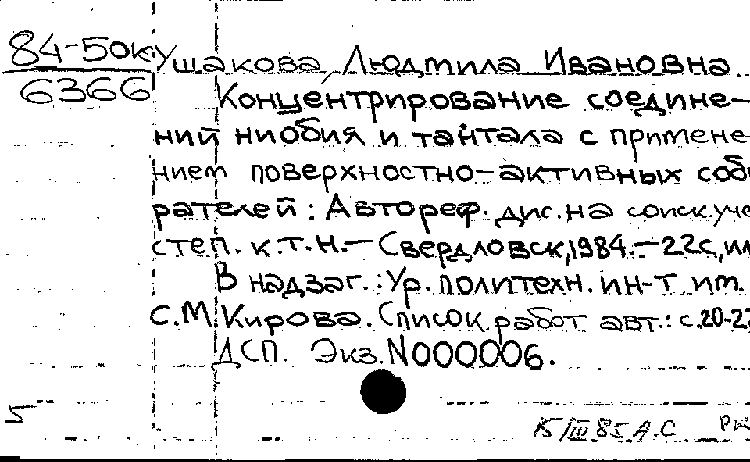 84-50к Ушакова, Людмила Ивановна
6366
Концентрирование соедине-
ний ниобия и тантала с примене-
нием поверхностно-активных соби
рателей: Автореф. дис. на соиск. уче
степ. к.т.н. — Свердловск, 1984. — 22с, ил
В надзаг.: Ур. политехн. ин-т им.
С.М. Кирова. Список работ авт.: с.20-22
ДСП. Экз. N000006.
5
15/III 85 А.С